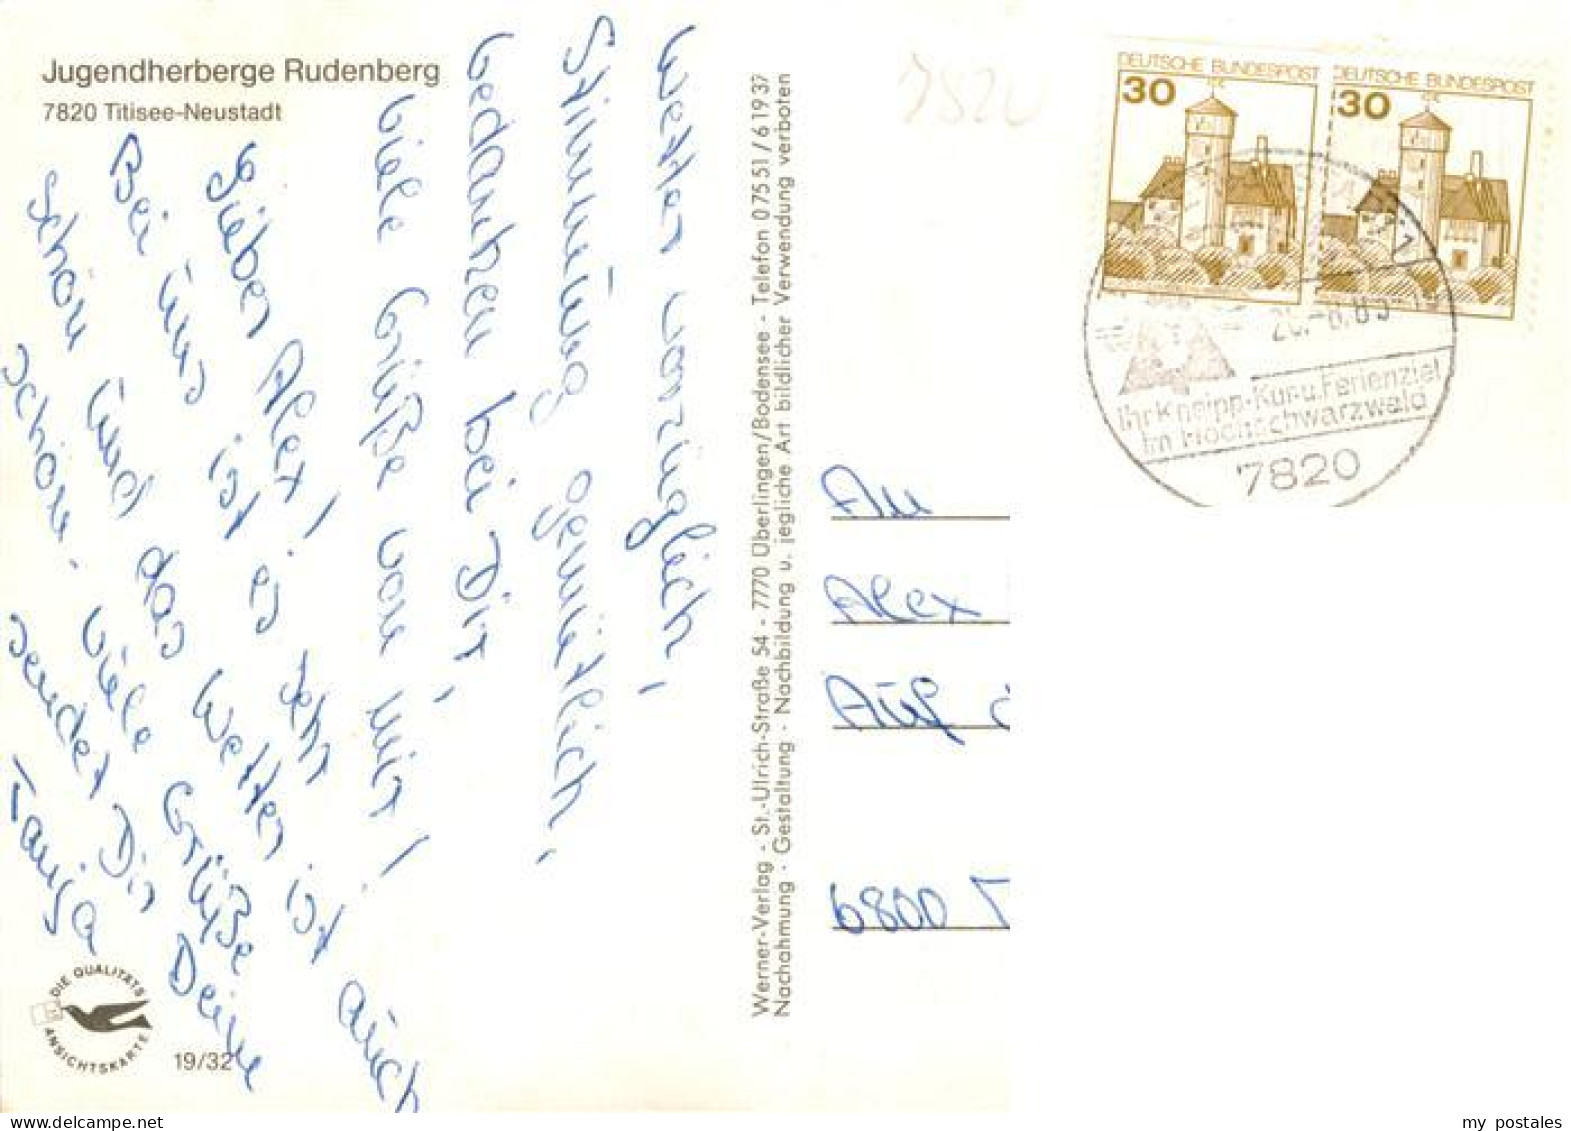 Jugendherberge Rudenberg
7820 Titisee-Neustadt
Lieber Alex!
Bei uns ist es sehr
schön und das Wetter ist auch
schön. Viele Grüße
sendet Dir Deine
Tanja
Wetter vorzüglich,
Stimmung gemütlich,
Gedanken bei Dir,
Viele Grüße von mir!
DIE QUALITÄTS
ANSICHTSKARTE
19/32
Werner-Verlag - St.-Ulrich-Straße 54 - 7770 Überlingen/Bodensee - Telefon 07551/61937
Nachahmung · Gestaltung · Nachbildung u. jegliche Art bildlicher Verwendung verboten
7820
DEUTSCHE BUNDESPOST
30
DEUTSCHE BUNDESPOST
30
Ihr Kneipp-Kur-u. Ferienziel
im Hochschwarzwald
7820
An
Alex
Auf
6800
my postales